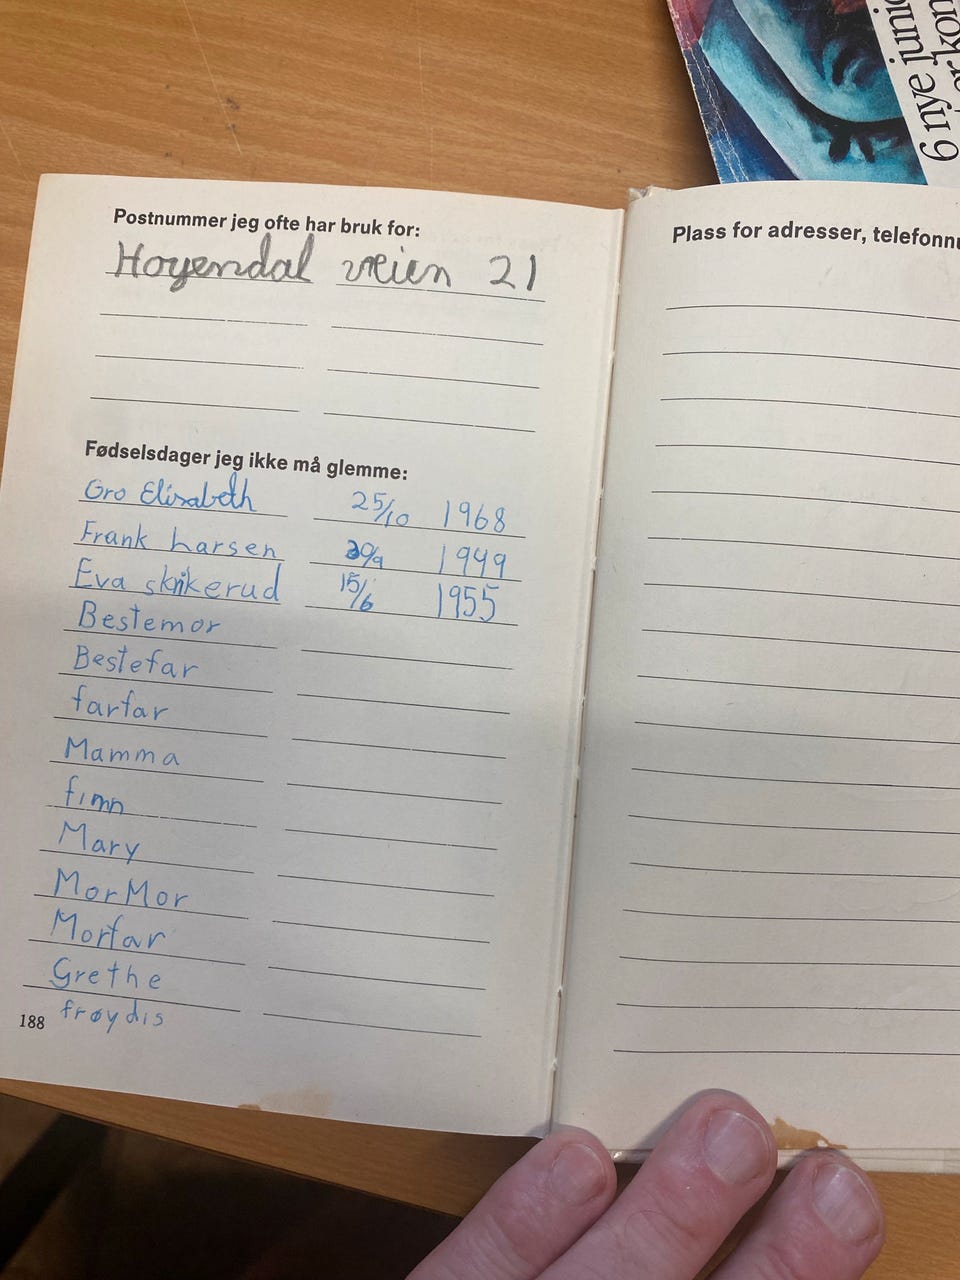 6 nye juni
Postnummer jeg ofte har bruk for:
Hoyendal veien 21
Fødselsdager jeg ikke må glemme:
Gro Elisabeth 25/10 1968
Frank Larsen 20/9 1949
Eva skrikerud 15/6 1955
Bestemor
Bestefar
farfar
Mamma
finn
Mary
MorMor
Morfar
Grethe
frøydis
188
Plass for adresser, telefonnu